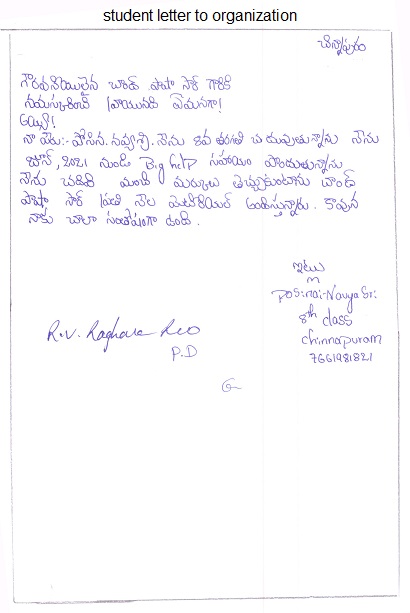 student letter to organization
చిన్నాపురం
గౌరవనీయులైన చాంద్ పాషా సార్ గారికి
నమస్కరించి వ్రాయునది ఏమనగా!
అయ్యా!
నా పేరు:- పోసిన. నవ్యశ్రీ. నేను 8వ తరగతి చదువుతున్నాను నేను
జూన్, 2021 నుండి Big help సహాయం పొందుతున్నాను
నేను చదివి మంచి మార్కులు తెచ్చుకుంటాను చాంద్
పాషా సార్ ప్రతి నెల మెటీరియల్ అందిస్తున్నారు. కావున
నాకు చాలా సంతోషంగా ఉంది.
ఇట్లు
posinai-Navya Sri
8th class
chinnapuram
7661981821
R.V. Raghava Rao
P.D